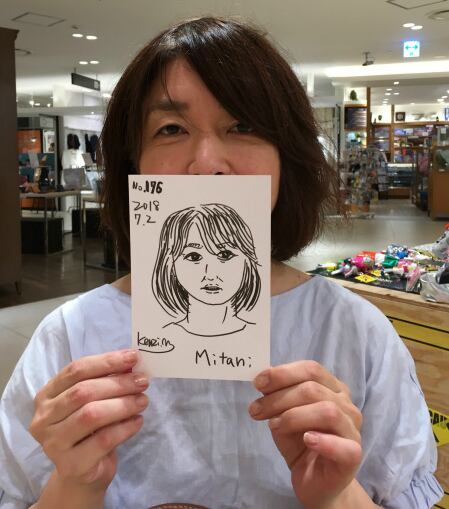 No.176
2018
7.2
Mitani